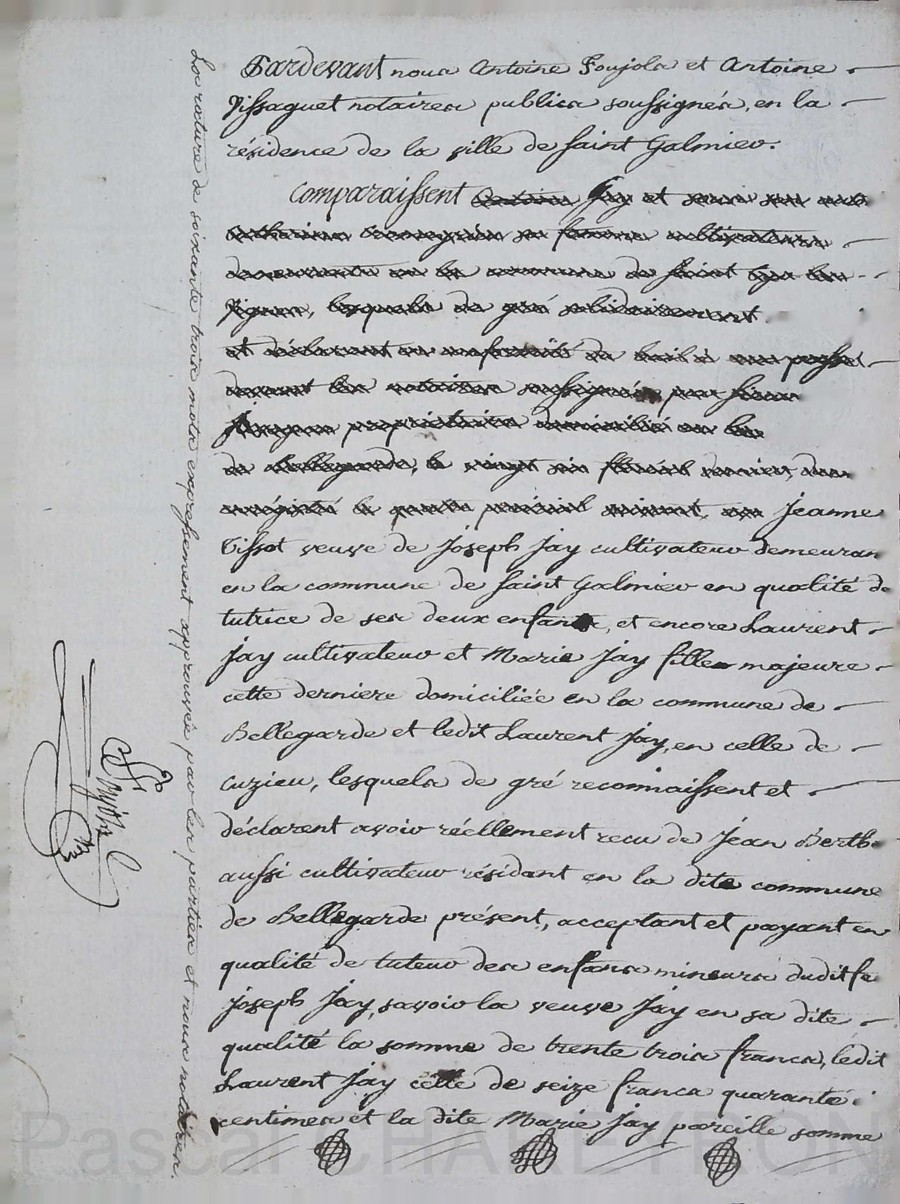 Pardevant nous Antoine Soujols et Antoine
Pissaguet notaires publics soussignés, en la
résidence de la ville de Saint Galmier.
Comparaissent Jay et
femme
demeurants en la commune de Saint
lesquels de gré solidairement
et déclarent en conformité du bail à
devant les notaires soussignés par
propriétaire domicilié au
de Bellegarde, le vingt six floréal dernier,
enregistré le prairial suivant, Jeanne
Tissot veuve de Joseph Jay cultivateur demeuran
en la commune de Saint Galmier en qualité de
tutrice de ses deux enfants, et encore Laurent
Jay cultivateur et Marie Jay fille majeure
cette derniere domiciliée en la commune de
Bellegarde et ledit Laurent Jay, en celle de
Cuzieu, lesquels de gré reconnaissent et
déclarent avoir réellement recu de Jean Berth
aussi cultivateur résidant en la dite commune
de Bellegarde présent, acceptant et payant en
qualité de tuteur des enfans mineurs dudit fe
Joseph Jay, savoir la veuve Jay en sa dite
qualité la somme de trente trois francs, ledit
Laurent Jay celle de seize francs quarante
centimes et la dite Marie Jay pareille somme
La rature de soixante trois mots expressement approuvée par les parties et nous notaires.
Pascal CHAREYRON